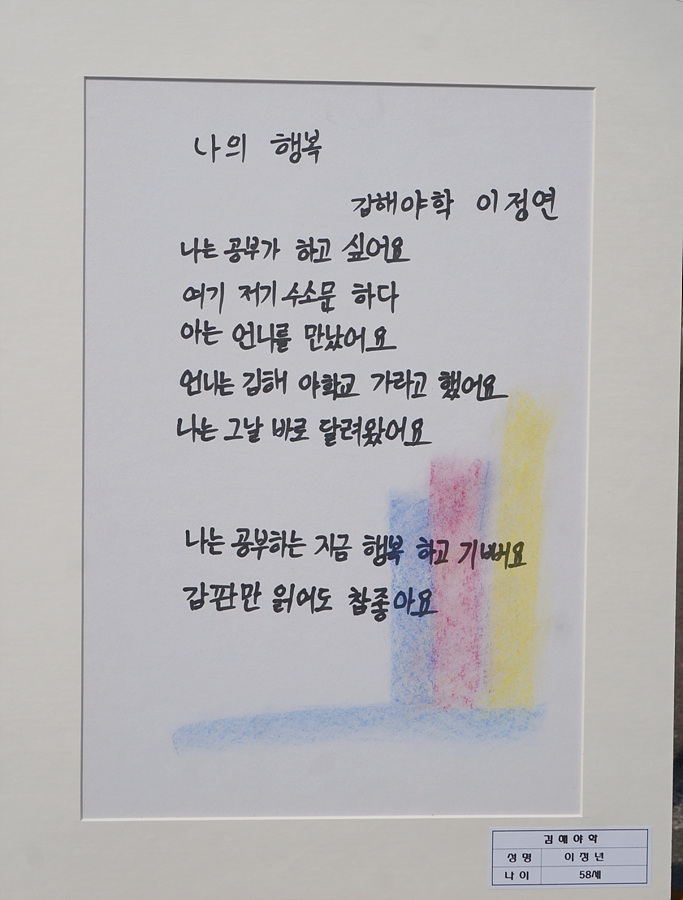 나의 행복
김해야학 이정연
나는 공부가 하고 싶어요
여기 저기 수소문 하다
아는 언니를 만났어요
언니는 김해 야확교 가라고 했어요
나는 그날 바로 달려왔어요
나는 공부하는 지금 행복 하고 기뻐요
갑판만 읽어도 참좋아요
김해야학
성명 이정년
나이 58세